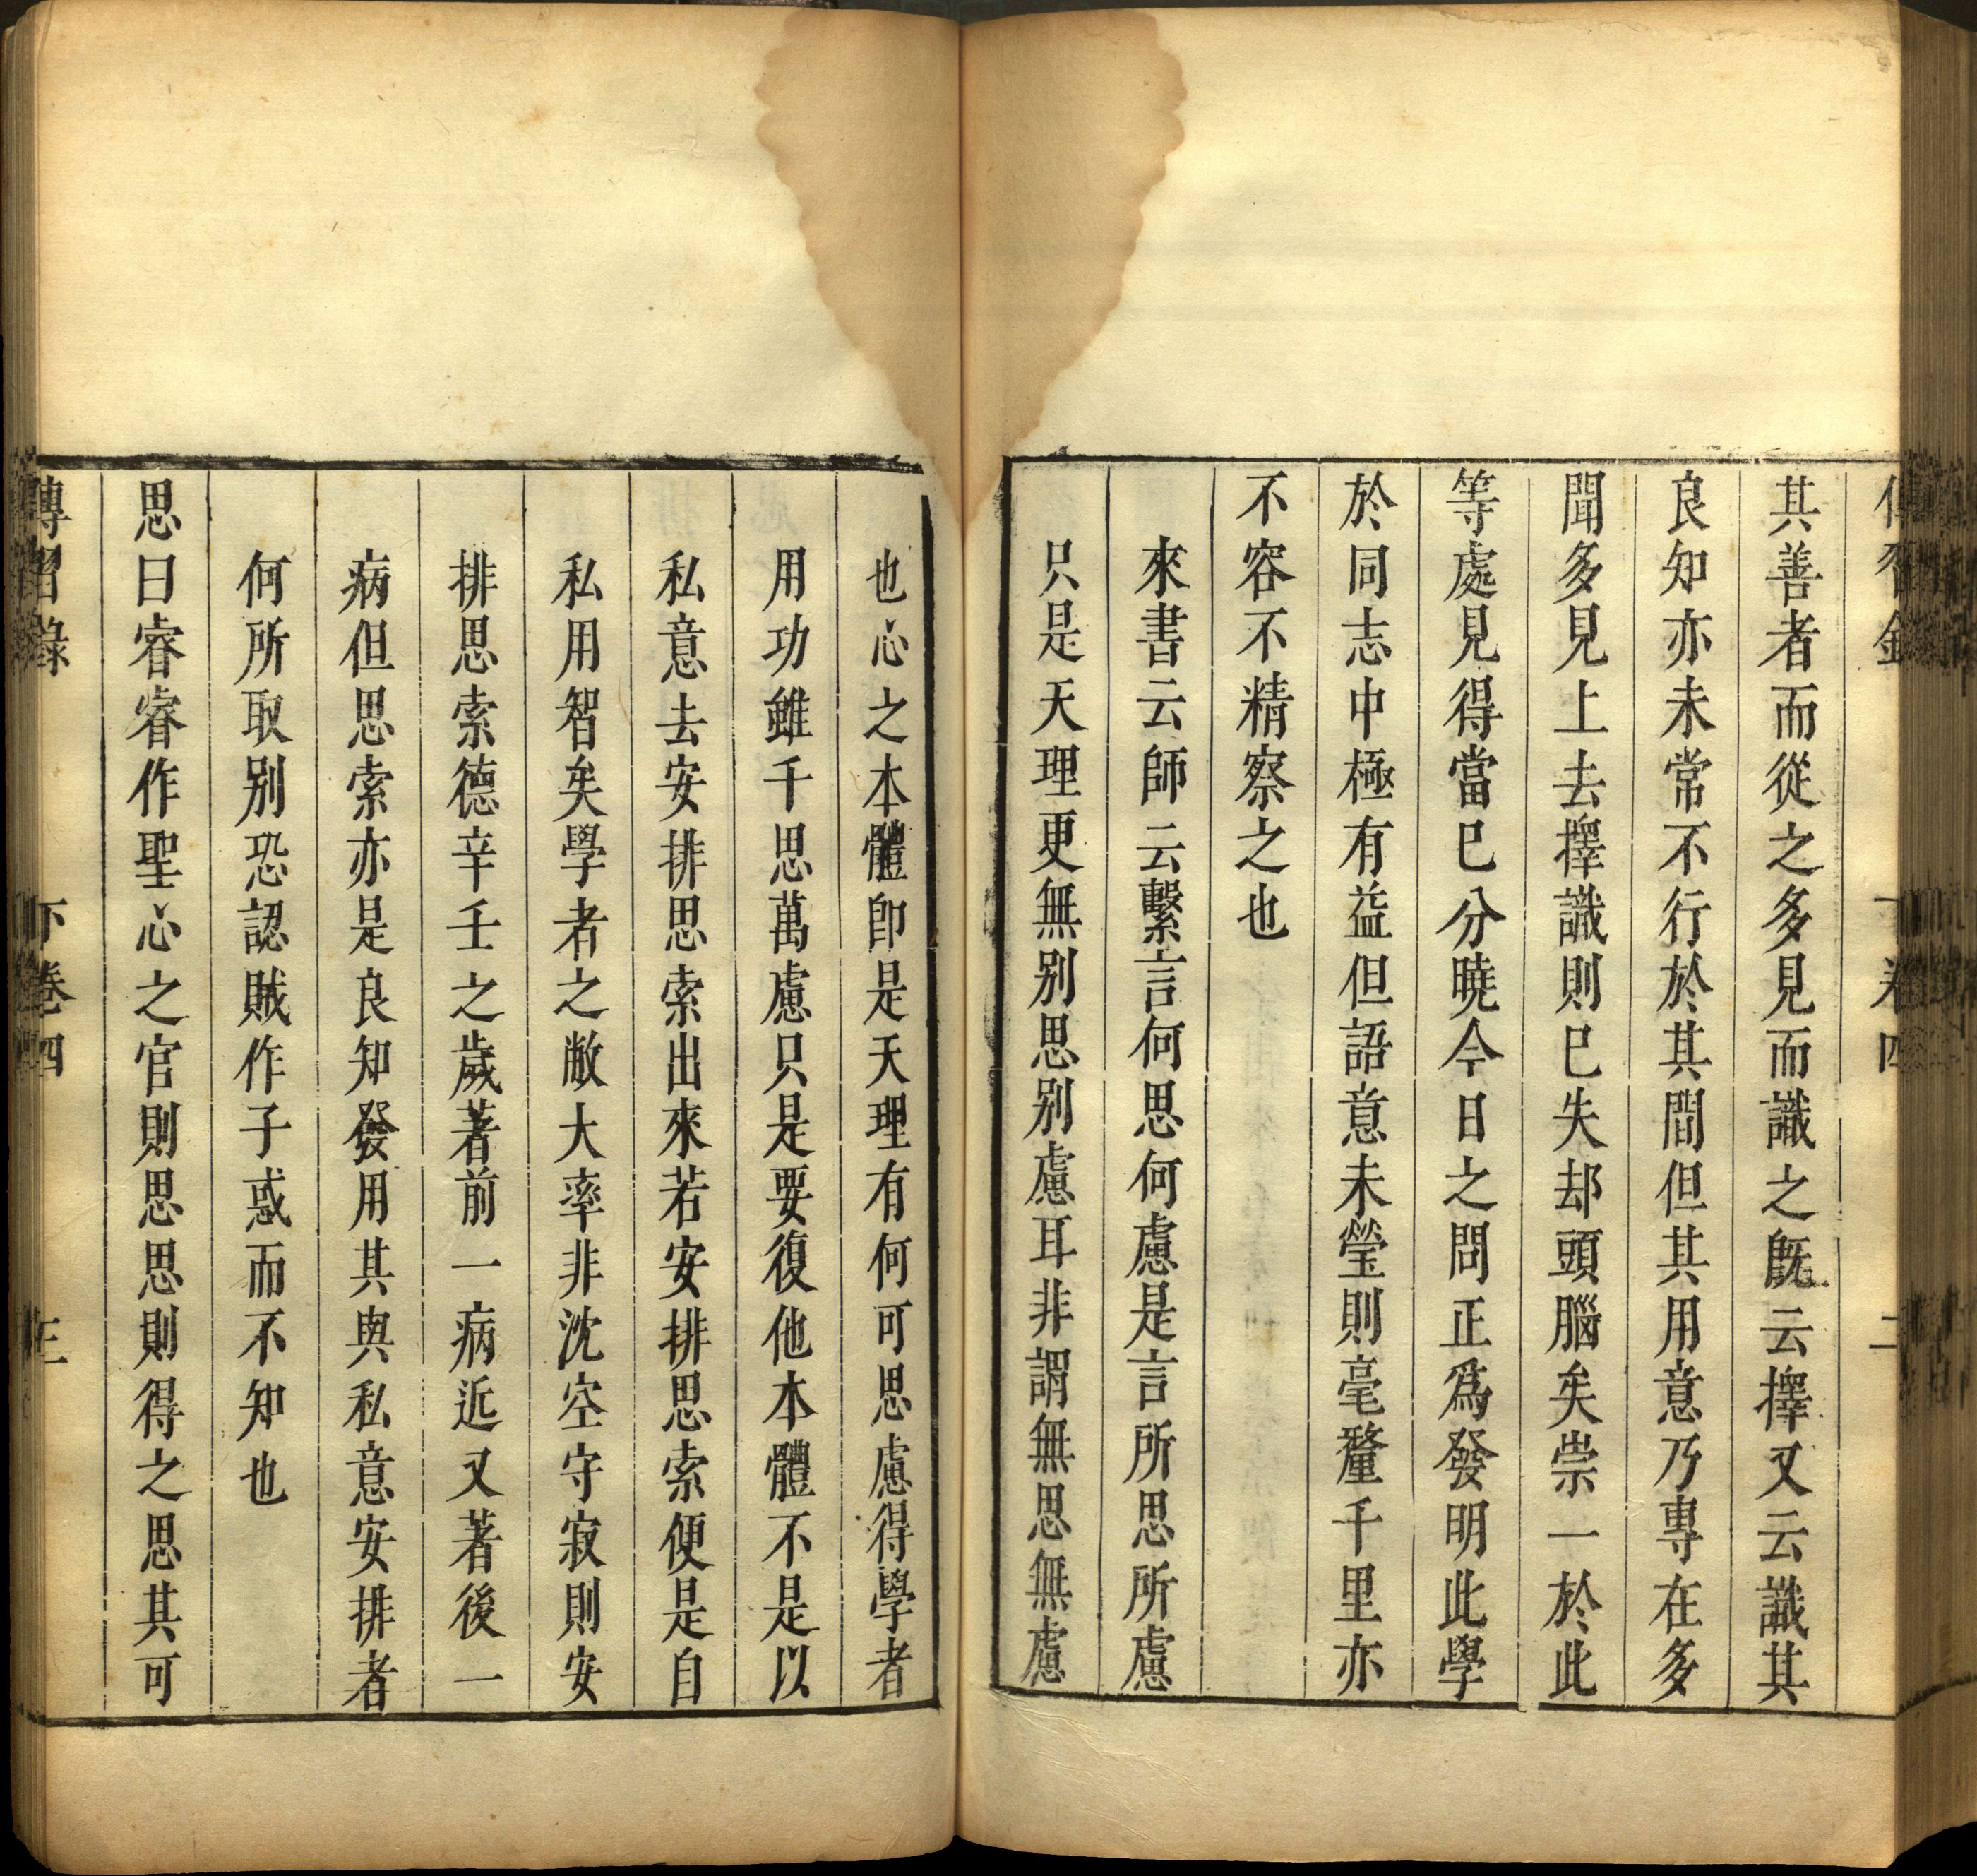 其善者而從之多見而識之旣云擇又云識其
良知亦未常不行於其間但其用意乃專在多
聞多見上去擇識則巳失却頭腦矣崇一於此
等處見得當巳分曉今日之問正爲發明此學
於同志中極有益但語意未瑩則毫釐千里亦
不容不精察之也
來書云師云繫言何思何慮是言所思所慮
只是天理更無别思别慮耳非謂無思無慮
也心之本體卽是天理有何可思慮得學者
用功雖千思萬慮只是要復他本體不是以
私意去安排思索出來若安排思索便是自
私用智矣學者之敝大率非沈空守寂則安
排思索德辛壬之歲著前一病近又著後一
病但思索亦是良知發用其與私意安排者
何所取别恐認賊作子惑而不知也
思曰睿睿作聖心之官則思思則得之思其可
傳習錄 下卷四 三